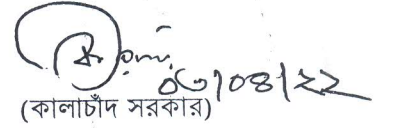 ০৩/০৪/২২
(কালাচাঁদ সরকার)